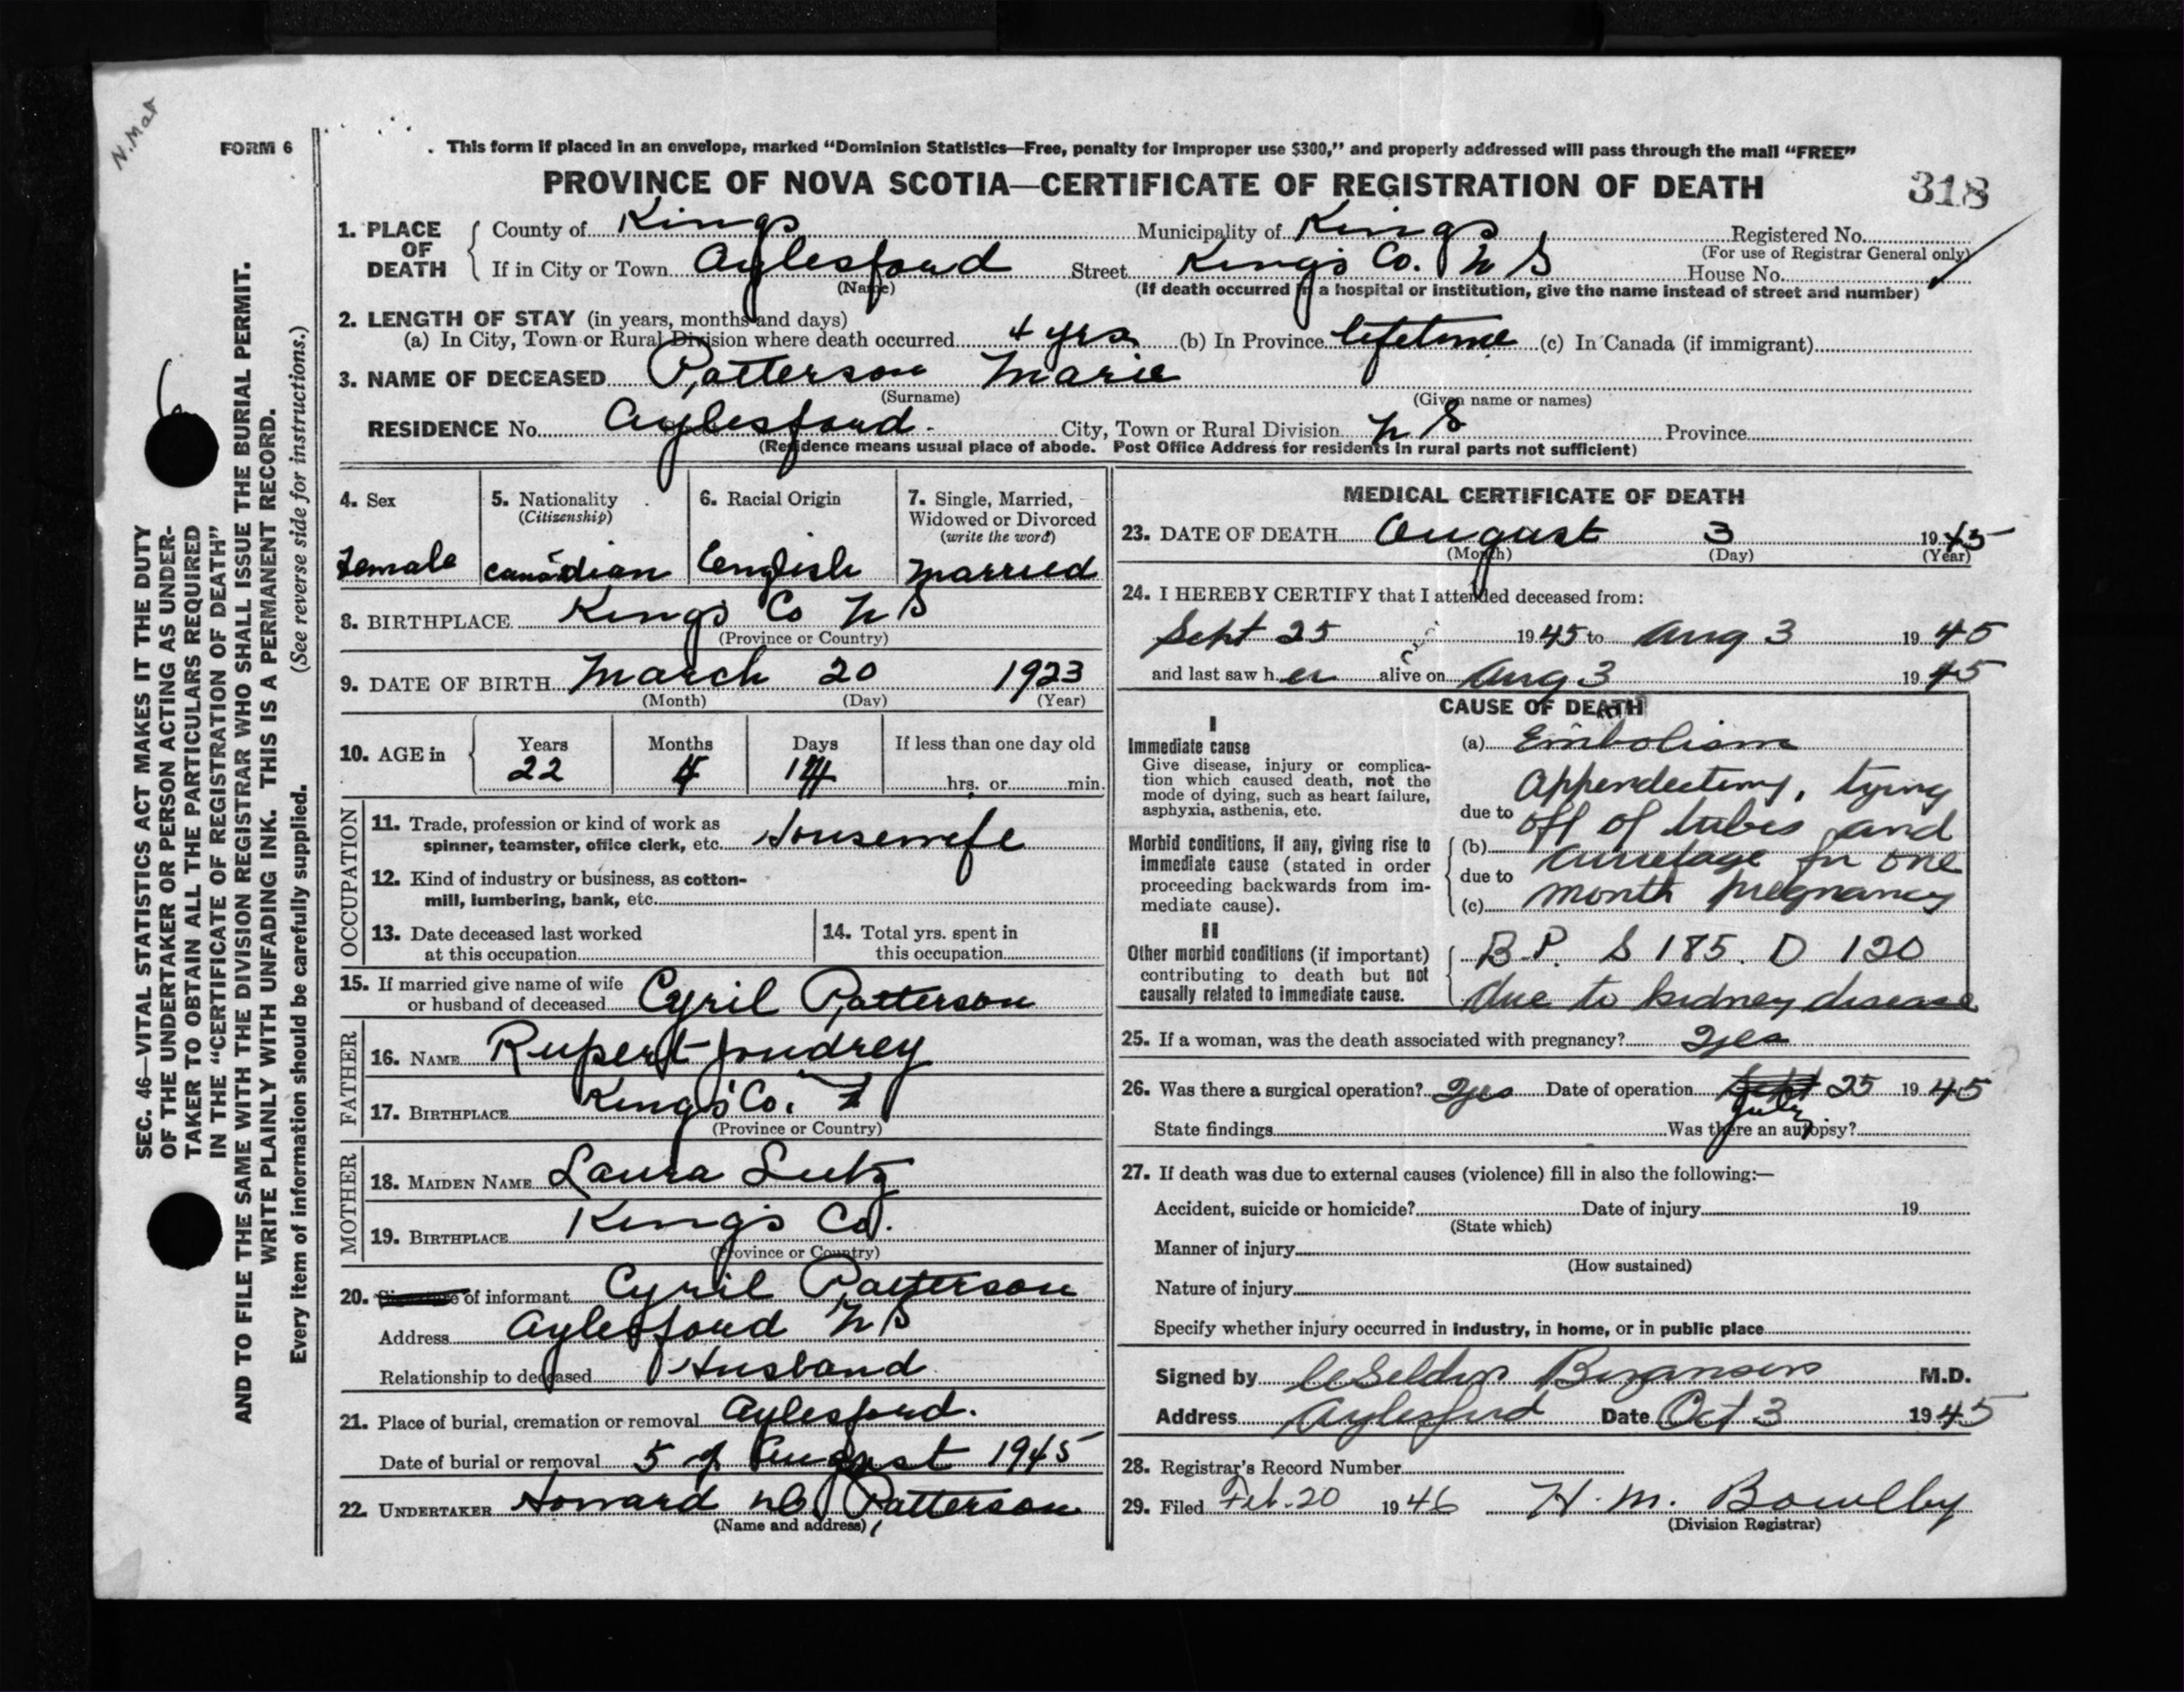 N. Mat
FORM 6
This form if placed in an envelope, marked “Dominion Statistics—Free, penalty for improper use $300,” and properly addressed will pass through the mail “FREE”
PROVINCE OF NOVA SCOTIA—CERTIFICATE OF REGISTRATION OF DEATH
318
1. PLACE OF DEATH County of Kings Municipality of Kings Registered No.
(For use of Registrar General only)
If in City or Town Aylesford Street Kings Co. N S House No.
(Name) (If death occurred in a hospital or institution, give the name instead of street and number)
2. LENGTH OF STAY (in years, months and days)
(a) In City, Town or Rural Division where death occurred 4 yrs (b) In Province lifetime (c) In Canada (if immigrant)
3. NAME OF DECEASED Patterson Marie
(Surname) (Given name or names)
RESIDENCE No. Street Aylesford. City, Town or Rural Division N S Province
(Residence means usual place of abode. Post Office Address for residents in rural parts not sufficient)
4. Sex
Female
5. Nationality
(Citizenship)
Canadian
6. Racial Origin
English
7. Single, Married,
Widowed or Divorced
(write the word)
Married
8. BIRTHPLACE Kings Co N S
(Province or Country)
9. DATE OF BIRTH March 20 1923
(Month) (Day) (Year)
10. AGE in Years Months Days If less than one day old
22 4 14 hrs. or min.
OCCUPATION
11. Trade, profession or kind of work as
spinner, teamster, office clerk, etc. Housewife
12. Kind of industry or business, as cotton-
mill, lumbering, bank, etc.
13. Date deceased last worked
at this occupation
14. Total yrs. spent in
this occupation
15. If married give name of wife
or husband of deceased Cyril Patterson
FATHER
16. NAME Rupert Joudrey
17. BIRTHPLACE Kings Co.
(Province or Country)
MOTHER
18. MAIDEN NAME Laura Lutz
19. BIRTHPLACE Kings Co.
(Province or Country)
20. of informant Cyril Patterson
Address Aylesford N S
Relationship to deceased Husband
21. Place of burial, cremation or removal Aylesford.
Date of burial or removal 5 of August 1945
22. UNDERTAKER Howard Patterson
(Name and address)
MEDICAL CERTIFICATE OF DEATH
23. DATE OF DEATH August 3 1945
(Month) (Day) (Year)
24. I HEREBY CERTIFY that I attended deceased from:
Sept 25 1945 to Aug 3 1945
and last saw her alive on Aug 3 1945
CAUSE OF DEATH
I
Immediate cause
Give disease, injury or complica-
tion which caused death, not the
mode of dying, such as heart failure,
asphyxia, asthenia, etc.
Morbid conditions, if any, giving rise to
immediate cause (stated in order
proceeding backwards from im-
mediate cause).
(a) Embolism
due to Appendectomy, tying
off of tubes and
(b) curretage for one
due to
(c) month pregnancy
II
Other morbid conditions (if important)
contributing to death but not
causally related to immediate cause.
B.P. S 185. D 120
due to kidney disease
25. If a woman, was the death associated with pregnancy? Yes
26. Was there a surgical operation? Yes Date of operation Sept July 25 1945
State findings Was there an autopsy?
27. If death was due to external causes (violence) fill in also the following:—
Accident, suicide or homicide? Date of injury 19
(State which)
Manner of injury
(How sustained)
Nature of injury
Specify whether injury occurred in industry, in home, or in public place
Signed by M.D.
Address Aylesford Date Oct 3 1945
28. Registrar's Record Number
29. Filed Feb. 20 1946 H. M. Bowlby
(Division Registrar)
SEC. 46—VITAL STATISTICS ACT MAKES IT THE DUTY
OF THE UNDERTAKER OR PERSON ACTING AS UNDER-
TAKER TO OBTAIN ALL THE PARTICULARS REQUIRED
IN THE “CERTIFICATE OF REGISTRATION OF DEATH”
AND TO FILE THE SAME WITH THE DIVISION REGISTRAR WHO SHALL ISSUE THE BURIAL PERMIT.
WRITE PLAINLY WITH UNFADING INK. THIS IS A PERMANENT RECORD.
Every item of information should be carefully supplied. (See reverse side for instructions.)